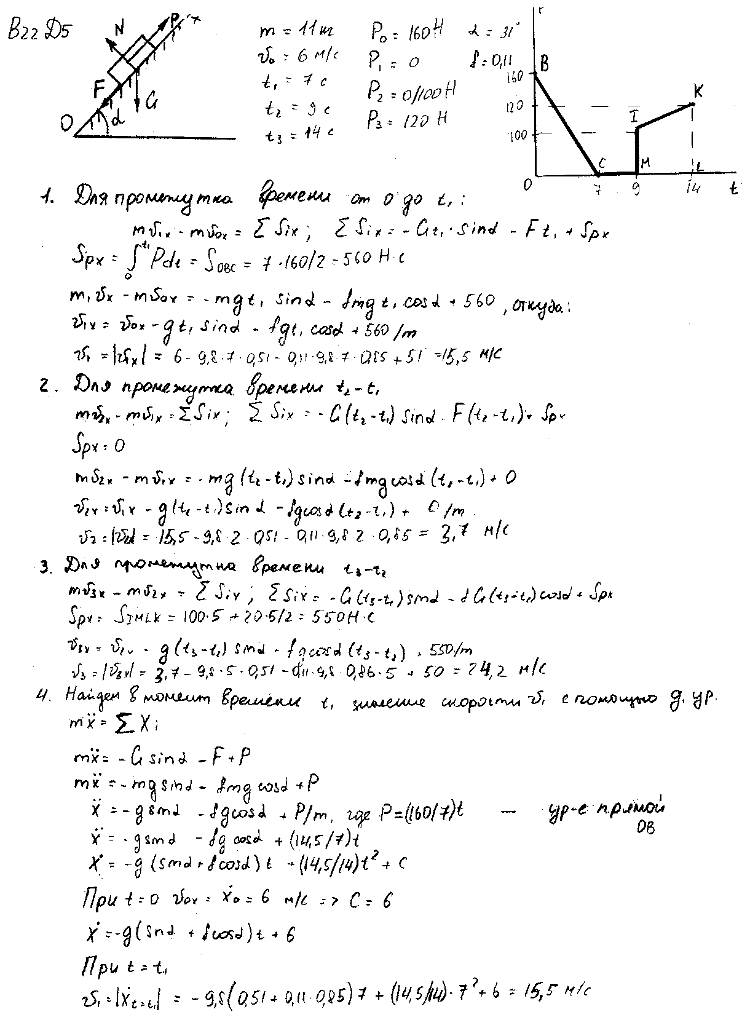 В22 Д5
N P x
F
α G
O
m = 11 кг P₀ = 160 Н α = 31°
v₀ = 6 м/с P₁ = 0 f = 0,11
t₁ = 7 с P₂ = 0/100 Н
t₂ = 9 с P₃ = 120 Н
t₃ = 14 с
B
160
120 I K
100
C M L
0 7 9 14 t
1. Для промежутка времени от 0 до t₁:
mv₁ₓ - mv₀ₓ = ΣSiₓ; ΣSiₓ = -Gt₁·sinα - Ft₁ + Spₓ
Spₓ = ∫₀^t₁ Pdt = S_OBC = 7·160/2 = 560 Н·с
m₁vₓ - mv₀ₓ = -mgt₁ sinα - fmgt₁ cosα + 560, откуда:
v₁ₓ = v₀ₓ - gt₁ sinα - fgt₁ cosα + 560/m
v₁ = |v₁ₓ| = 6 - 9,8·7·0,51 - 0,11·9,8·7·0,85 + 51 = 15,5 м/с
2. Для промежутка времени t₂-t₁
mv₂ₓ - mv₁ₓ = ΣSiₓ; ΣSiₓ = -G(t₂-t₁) sinα - F(t₂-t₁) + Spₓ
Spₓ = 0
mv₂ₓ - mv₁ₓ = -mg(t₂-t₁) sinα - fmg cosα (t₂-t₁) + 0
v₂ₓ = v₁ₓ - g(t₂-t₁) sinα - fg cosα (t₂-t₁) + 0/m
v₂ = |v₂ₓ| = 15,5 - 9,8·2·0,51 - 0,11·9,8·2·0,85 = 3,7 м/с
3. Для промежутка времени t₃-t₂
mv₃ₓ - mv₂ₓ = ΣSiₓ; ΣSiₓ = -G(t₃-t₂) sinα - fG(t₃-t₂) cosα + Spₓ
Spₓ = S_IMLK = 100·5 + 20·5/2 = 550 Н·с
v₃ₓ = v₂ₓ - g(t₃-t₂) sinα - fg cosα (t₃-t₂) + 550/m
v₃ = |v₃ₓ| = 3,7 - 9,8·5·0,51 - 0,11·9,8·0,86·5 + 50 = 24,2 м/с
4. Найдем в момент времени t₁ значение скорости v₁ с помощью д. ур.
mẍ = ΣXi
mẍ = -G sinα - F + P
mẍ = -mg sinα - fmg cosα + P
ẍ = -g sinα - fg cosα + P/m, где P = (160/7)t — ур-е прямой
OB
ẍ = -g sinα - fg cosα + (14,5/7)t
ẋ = -g (sinα + f cosα) t + (14,5/14)t² + C
При t = 0 v₀ₓ = ẋ₀ = 6 м/с => C = 6
ẋ = -g(sinα + f cosα)t + 6
При t = t₁
v₁ = |ẋ t=t₁| = -9,8(0,51 + 0,11·0,85)7 + (14,5/14)·7² + 6 = 15,5 м/с